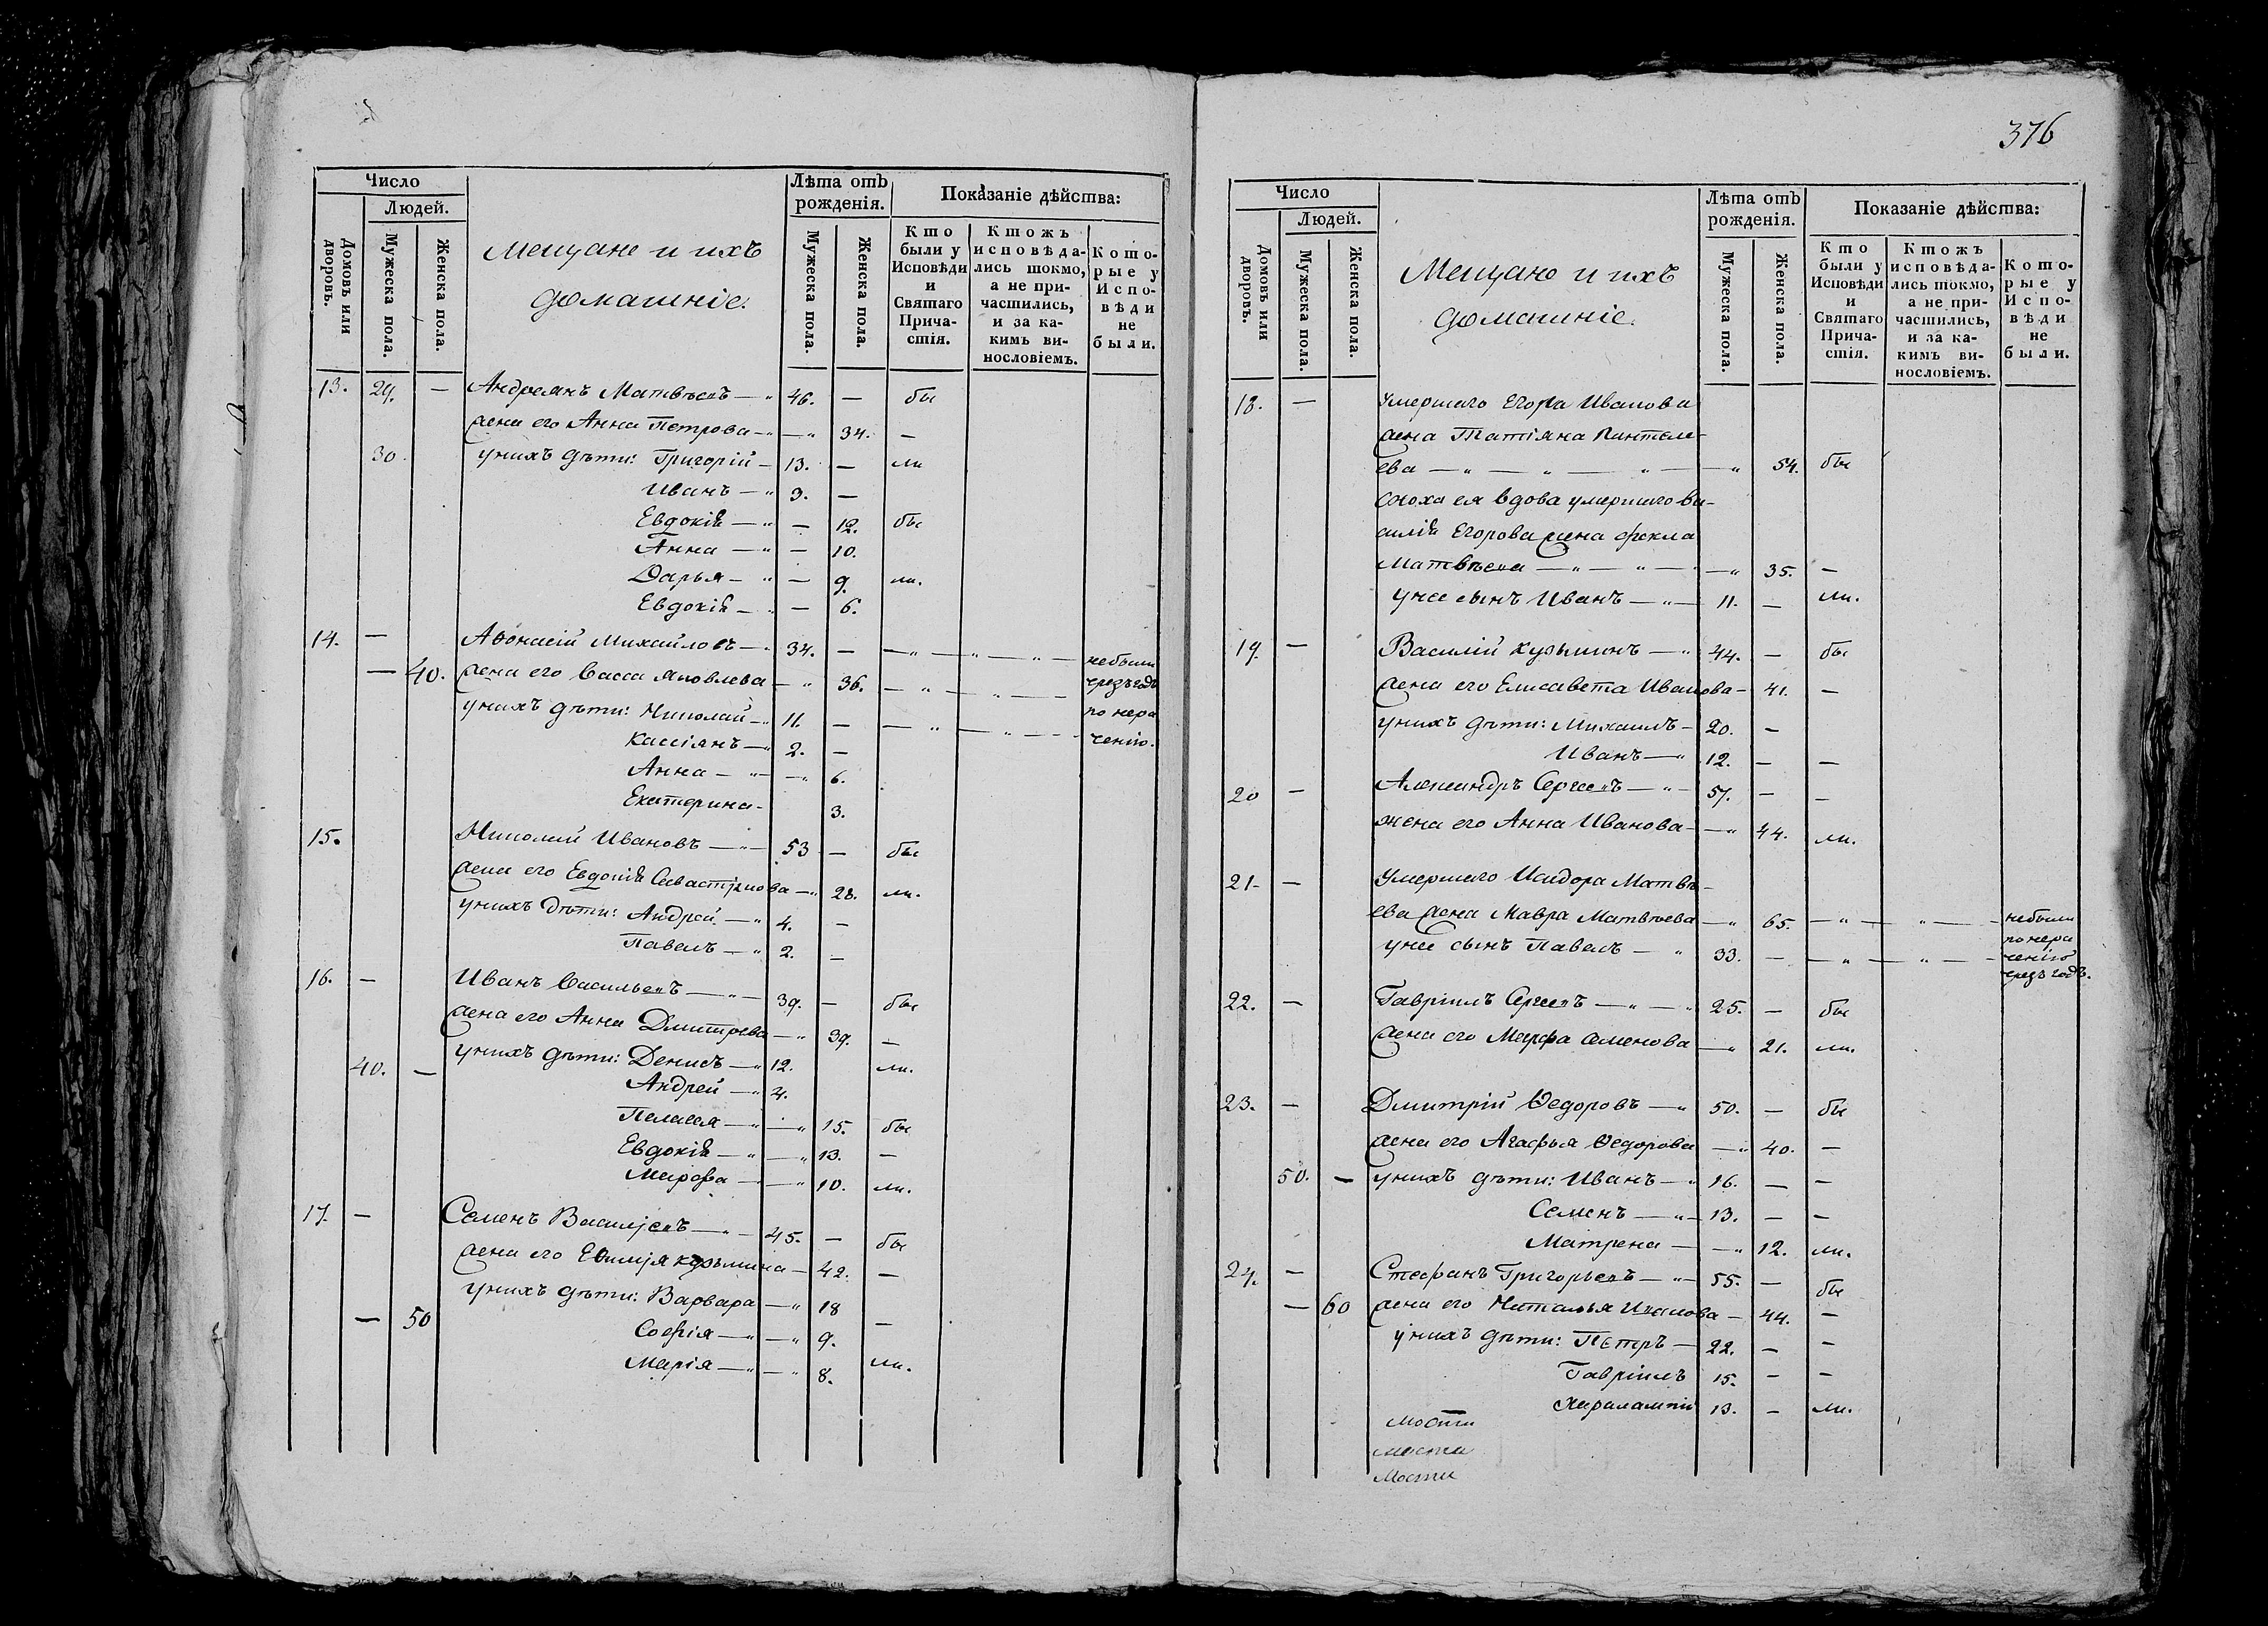 Число
Людей.
Домовъ или дворовъ.
Мужеска пола.
Женска пола.
Мещане и ихъ
домашніе.
Лѣта отъ
рожденія.
Мужеска пола.
Женска пола.
Показаніе дѣйства:
Кто
были у
Исповѣди
и
Святаго
Прича-
стія.
Ктожъ
исповѣда-
лись токмо,
а не при-
частились,
и за ка-
кимъ ви-
нословіемъ.
Кото-
рые у
Испо-
вѣди
не
были.
13. 29. — Андреянъ Матвѣевъ — 46. — бы
жена его Анна Петрова — 34. —
30 унихъ дѣти: Григорій — 13. — ли
Иванъ — 3. —
Евдокія — — 12. бы
Анна — — 10.
Дарья — — 9. ли.
Евдокія — — 6.
14. — Афонасій Михайловъ — 34. — — „ — „ — „ — небыли
— 40. жена его Васса Яковлева — „ 36. — „ — „ — чрезъ годъ
унихъ дѣти: Николай — 11. — — „ — „ — по нера
Кассіянъ — 2. — ченію.
Анна — „ — 6.
Екатерина — 3.
15. Николай Ивановъ — 53 — бы
жена его Евдокія Севастіянова — „ 28. ли.
унихъ дѣти: Андрей — „ 4. —
Павелъ — „ 2. —
16. — Иванъ Васильевъ — „ — 39. — бы
жена его Анна Дмитрева — „ 39. —
40. — унихъ дѣти: Денисъ — „ 12. ли.
Андрей — „ 4.
Пелагея — „ — „ 15. бы
Евдокія — „ — „ 13. —
Марфа — — „ 10. ли.
17. — Семенъ Васильевъ — „ — 45. — бы
жена его Евфимія Козьмина — 42. —
унихъ дѣти: Варвара — „ 18
— 50 —
Софія — „ — „ 9.
Марія — „ — „ 8. ли.
376
Число
Людей.
Домовъ или дворовъ.
Мужеска пола.
Женска пола.
Мещане и ихъ
домашніе.
Лѣта отъ
рожденія.
Мужеска пола.
Женска пола.
Показаніе дѣйства:
Кто
были у
Исповѣди
и
Святаго
Прича-
стія.
Ктожъ
исповѣда-
лись токмо,
а не при-
частились,
и за ка-
кимъ ви-
нословіемъ.
Кото-
рые у
Испо-
вѣди
не
были.
18. — умершаго Егора Иванова
жена Татіяна Пантеле-
ева — „ — „ — „ — — „ 54. бы
сноха ея вдова умершаго Ва-
силія Егорова жена Фекла
Матвѣева — „ — „ — — „ 35. —
унее сынъ Иванъ — „ — 11. — ли.
19. — Василій Кузьминъ — „ 44. — бы
жена его Елисавета Иванова — 41. —
унихъ дѣти: Михаилъ — 20. —
Иванъ — „ 12. — —
20 — Александръ Сергеевъ — „ — 57. — —
жена его Анна Иванова — — „ 44. ли.
21. — Умершаго Исидора Матвѣ-
ева жена Мавра Матвѣева — „ 65. — „ — „ — небыли
по нера
унее сынъ Павелъ — „ 33. — — „ — „ — ченію
чрезъ годъ.
22. — Гавріилъ Сергеевъ — „ — „ 25. — бы
жена его Марфа Семенова — „ 21. ли.
23. — Дмитрій Федоровъ — „ 50. — бы
жена его Агафья Федорова — „ 40. —
50. — унихъ дѣти: Иванъ — „ 16. — —
Семенъ — „ — 13. — —
Матрена — — „ 12. ли.
24. — Стефанъ Григорьевъ — „ — 55. — бы
— 60 жена его Наталья Иванова — 44. —
унихъ дѣти: Петръ — 22. — —
Гавріилъ 15. — —
Харалампій 13. — ли.